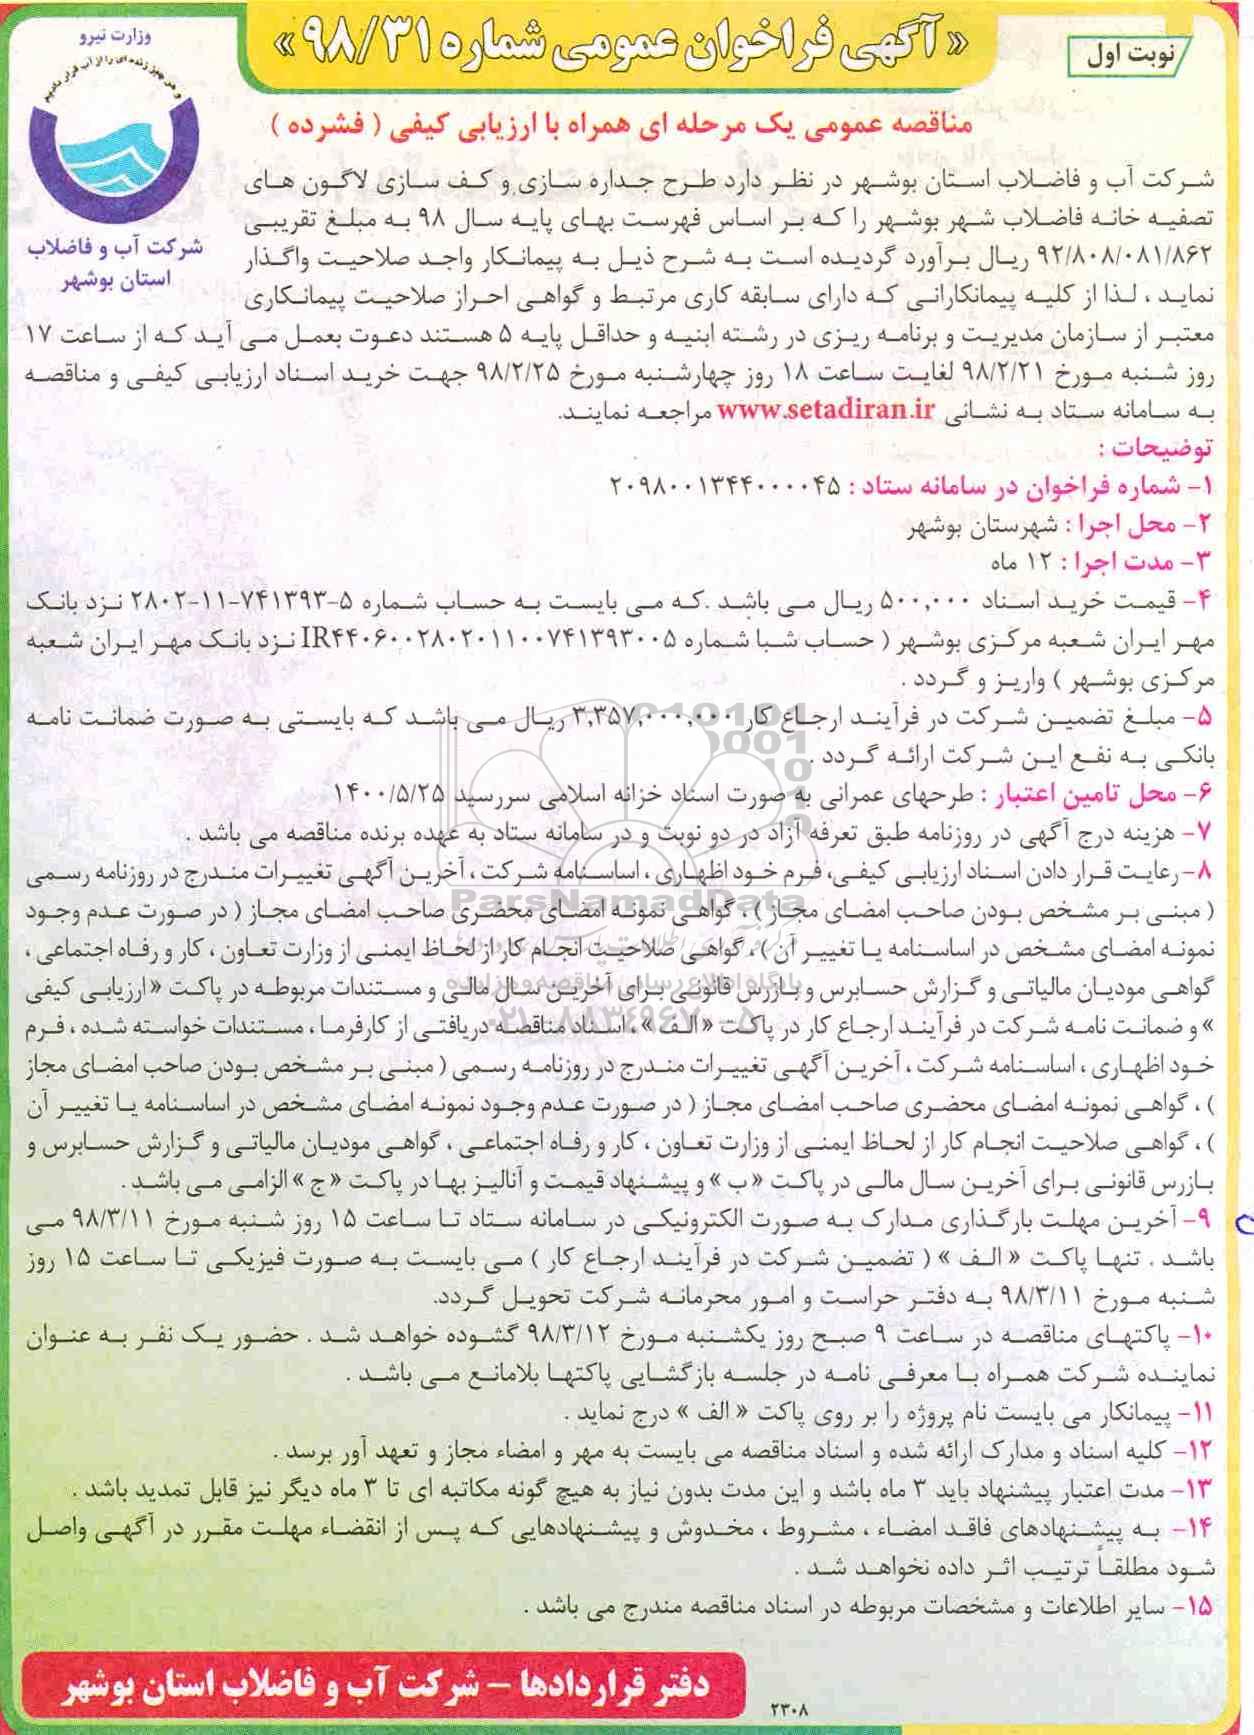 « آگهی فراخوان عمومی شماره ۹۸/۳۱ »
نوبت اول
وزارت نیرو
شرکت آب و فاضلاب
استان بوشهر
مناقصه عمومی یک مرحله ای همراه با ارزیابی کیفی ( فشرده )
شرکت آب و فاضلاب استان بوشهر در نظر دارد طرح جداره سازی و کف سازی لاگون های
تصفیه خانه فاضلاب شهر بوشهر را که بر اساس فهرست بهای پایه سال ۹۸ به مبلغ تقریبی
۹۲/۸۰۸/۰۸۱/۸۶۲ ریال برآورد گردیده است به شرح ذیل به پیمانکار واجد صلاحیت واگذار
نماید ، لذا از کلیه پیمانکارانی که دارای سابقه کاری مرتبط و گواهی احراز صلاحیت پیمانکاری
معتبر از سازمان مدیریت و برنامه ریزی در رشته ابنیه و حداقل پایه ۵ هستند دعوت بعمل می آید که از ساعت ۱۷
روز شنبه مورخ ۹۸/۲/۲۱ لغایت ساعت ۱۸ روز چهارشنبه مورخ ۹۸/۲/۲۵ جهت خرید اسناد ارزیابی کیفی و مناقصه
به سامانه ستاد به نشانی www.setadiran.ir مراجعه نمایند.
توضیحات :
۱- شماره فراخوان در سامانه ستاد : ۲۰۹۸۰۰۱۳۴۴۰۰۰۰۴۵
۲- محل اجرا : شهرستان بوشهر
۳- مدت اجرا : ۱۲ ماه
۴- قیمت خرید اسناد ۵۰۰,۰۰۰ ریال می باشد .که می بایست به حساب شماره ۵-۷۴۱۳۹۳-۱۱-۲۸۰۲ نزد بانک
مهر ایران شعبه مرکزی بوشهر ( حساب شبا شماره IR۴۴۰۶۰۰۲۸۰۲۰۱۱۰۰۷۴۱۳۹۳۰۰۵ نزد بانک مهر ایران شعبه
مرکزی بوشهر ) واریز و گردد .
۵- مبلغ تضمین شرکت در فرآیند ارجاع کار ۳,۳۵۷,۰۰۰,۰۰۰ ریال می باشد که بایستی به صورت ضمانت نامه
بانکی به نفع این شرکت ارائه گردد .
۶- محل تامین اعتبار : طرحهای عمرانی به صورت اسناد خزانه اسلامی سررسید ۱۴۰۰/۵/۲۵
۷- هزینه درج آگهی در روزنامه طبق تعرفه آزاد در دو نوبت و در سامانه ستاد به عهده برنده مناقصه می باشد .
۸- رعایت قرار دادن اسناد ارزیابی کیفی، فرم خود اظهاری ، اساسنامه شرکت ، آخرین آگهی تغییرات مندرج در روزنامه رسمی
( مبنی بر مشخص بودن صاحب امضای مجاز ) ، گواهی نمونه امضای محضری صاحب امضای مجاز ( در صورت عدم وجود
نمونه امضای مشخص در اساسنامه یا تغییر آن ) ، گواهی صلاحیت انجام کار از لحاظ ایمنی از وزارت تعاون ، کار و رفاه اجتماعی ،
گواهی مودیان مالیاتی و گزارش حسابرس و بازرس قانونی برای آخرین سال مالی و مستندات مربوطه در پاکت « ارزیابی کیفی
» و ضمانت نامه شرکت در فرآیند ارجاع کار در پاکت « الف » ، اسناد مناقصه دریافتی از کارفرما ، مستندات خواسته شده ، فرم
خود اظهاری ، اساسنامه شرکت ، آخرین آگهی تغییرات مندرج در روزنامه رسمی ( مبنی بر مشخص بودن صاحب امضای مجاز
) ، گواهی نمونه امضای محضری صاحب امضای مجاز ( در صورت عدم وجود نمونه امضای مشخص در اساسنامه یا تغییر آن
) ، گواهی صلاحیت انجام کار از لحاظ ایمنی از وزارت تعاون ، کار و رفاه اجتماعی ، گواهی مودیان مالیاتی و گزارش حسابرس و
بازرس قانونی برای آخرین سال مالی در پاکت « ب » و پیشنهاد قیمت و آنالیز بها در پاکت « ج » الزامی می باشد .
۹- آخرین مهلت بارگذاری مدارک به صورت الکترونیکی در سامانه ستاد تا ساعت ۱۵ روز شنبه مورخ ۹۸/۳/۱۱ می
باشد . تنها پاکت « الف » ( تضمین شرکت در فرآیند ارجاع کار ) می بایست به صورت فیزیکی تا ساعت ۱۵ روز
شنبه مورخ ۹۸/۳/۱۱ به دفتر حراست و امور محرمانه شرکت تحویل گردد.
۱۰- پاکتهای مناقصه در ساعت ۹ صبح روز یکشنبه مورخ ۹۸/۳/۱۲ گشوده خواهد شد . حضور یک نفر به عنوان
نماینده شرکت همراه با معرفی نامه در جلسه بازگشایی پاکتها بلامانع می باشد .
۱۱- پیمانکار می بایست نام پروژه را بر روی پاکت « الف » درج نماید .
۱۲- کلیه اسناد و مدارک ارائه شده و اسناد مناقصه می بایست به مهر و امضاء مجاز و تعهد آور برسد .
۱۳- مدت اعتبار پیشنهاد باید ۳ ماه باشد و این مدت بدون نیاز به هیچ گونه مکاتبه ای تا ۳ ماه دیگر نیز قابل تمدید باشد .
۱۴- به پیشنهادهای فاقد امضاء ، مشروط ، مخدوش و پیشنهادهایی که پس از انقضاء مهلت مقرر در آگهی واصل
شود مطلقاً ترتیب اثر داده نخواهد شد .
۱۵- سایر اطلاعات و مشخصات مربوطه در اسناد مناقصه مندرج می باشد .
دفتر قراردادها – شرکت آب و فاضلاب استان بوشهر
۲۳۰۸
ParsNamadData
پایگاه اطلاع رسانی مناقصه و مزایده